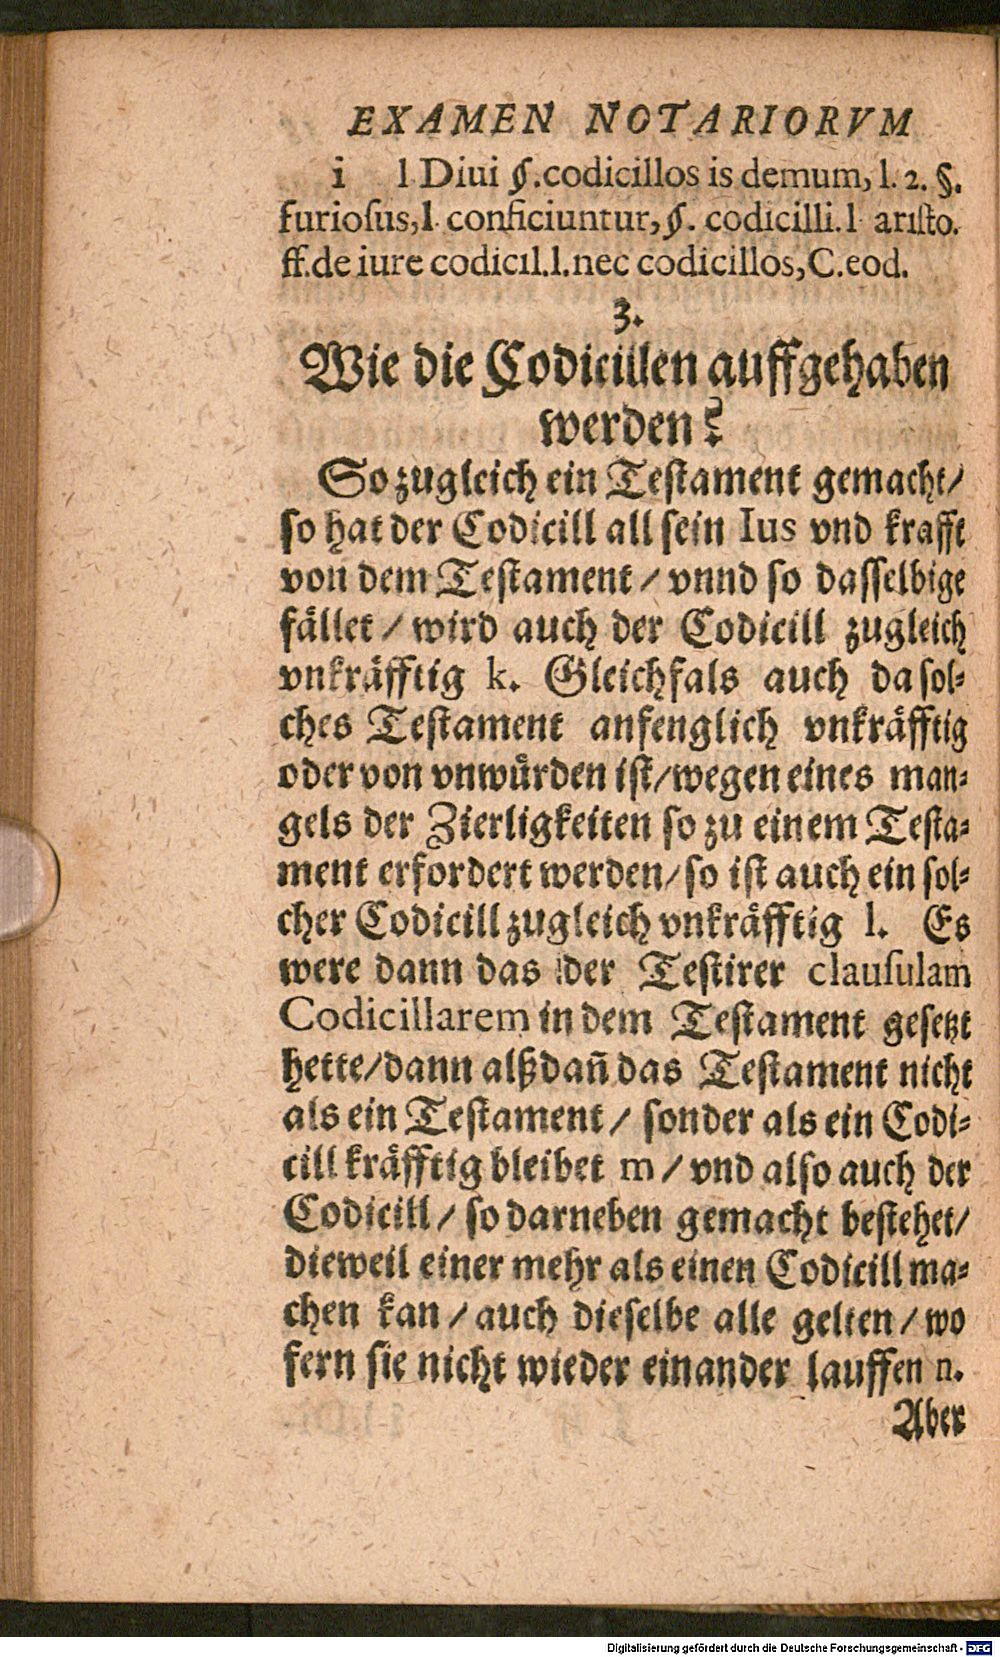 EXAMEN NOTARIORVM
i l Diui §.codicillos is demum, l. 2. §.
furioſus,l. conficiuntur, §. codicilli. l ariſto.
ff.de iure codicil.l.nec codicillos,C.eod.
3.
Wie die Codicillen auffgehaben
werden?
So zugleich ein Teſtament gemacht/
ſo hat der Codicill all ſein Ius vnd krafft
von dem Teſtament / vnnd ſo daſſelbige
fället / wird auch der Codicill zugleich
vnkräfftig k. Gleichfals auch da ſol⸗
ches Teſtament anfenglich vnkräfftig
oder von vnwürden iſt/wegen eines man⸗
gels der Zierligkeiten ſo zu einem Teſta⸗
ment erfordert werden/ſo iſt auch ein ſol⸗
cher Codicill zugleich vnkräfftig l. Es
were dann das der Teſtirer clauſulam
Codicillarem in dem Teſtament geſetzt
hette/dann alßdañ das Teſtament nicht
als ein Teſtament / ſonder als ein Codi⸗
cill kräfftig bleibet m / vnd alſo auch der
Codicill / ſo darneben gemacht beſtehet/
dieweil einer mehr als einen Codicill ma⸗
chen kan / auch dieſelbe alle gelten / wo
fern ſie nicht wieder einander lauffen n.
Aber
Digitalisierung gefördert durch die Deutsche Forschungsgemeinschaft - DFG